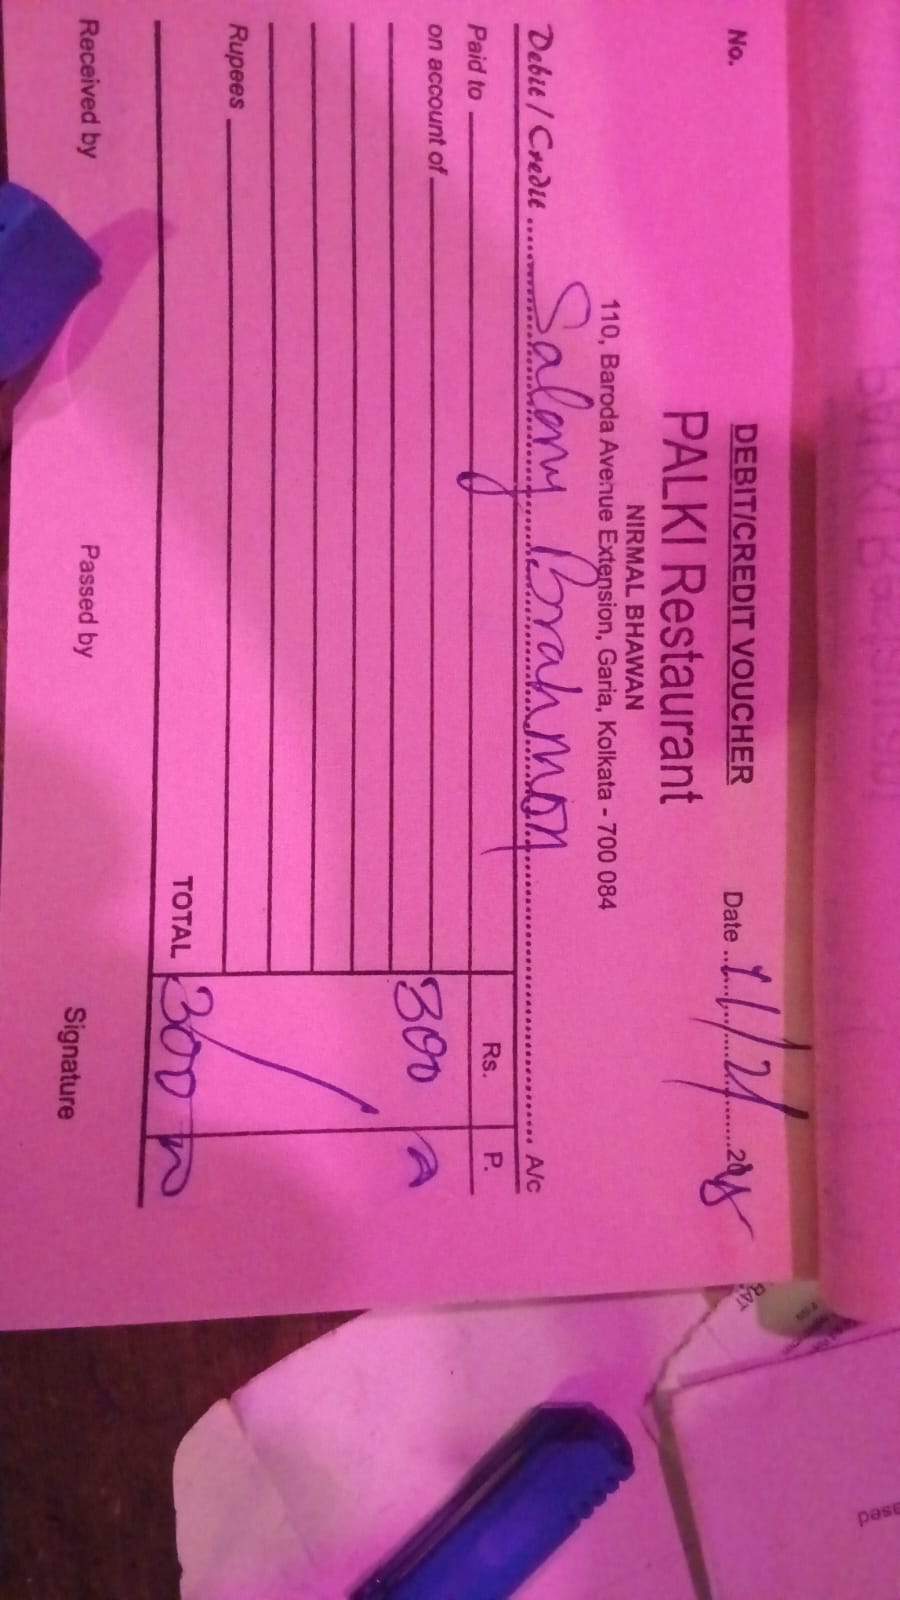 DEBIT/CREDIT VOUCHER
No.
Date
PALKI Restaurant
NIRMAL BHAWAN
110, Baroda Avenue Extension, Garia, Kolkata - 700 084
Debit / Credit Salary Brahmon A/c
Paid to Rs. P.
on account of 300
Rupees
TOTAL 300
Received by Passed by Signature